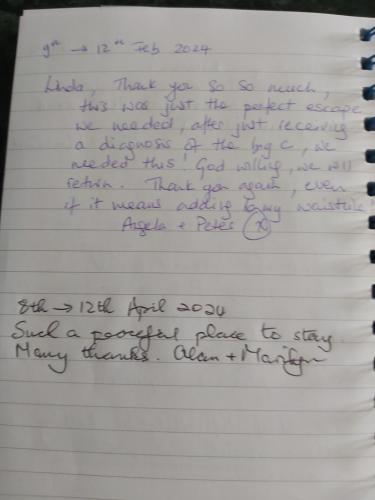 9th → 12th Feb 2024
Linda, Thank you so so much,
this was just the perfect escape
we needed, after just receiving
a diagnosis of the big c, we
needed this! God willing, we will
return. Thank you again, even
if it means adding to my waistline
Angela + Peter x
8th → 12th April 2024
Such a peaceful place to stay.
Many thanks. Alan + Marilyn